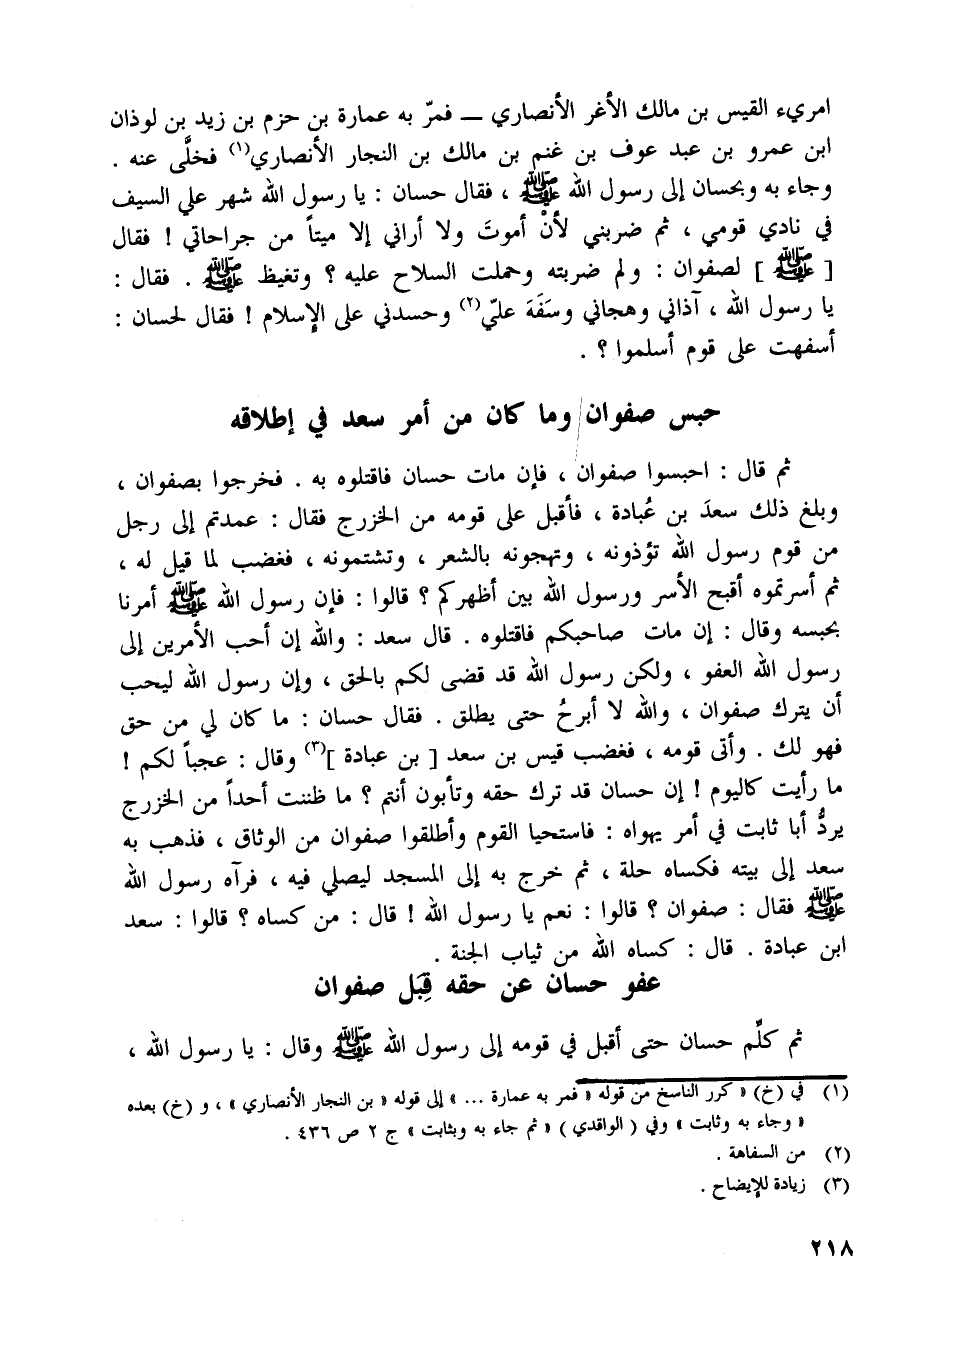 امريء القيس بن مالك الأغر الأنصاري — فمرّ به عمارة بن حزم بن زيد بن لوذان
ابن عمرو بن عبد عوف بن غنم بن مالك بن النجار الأنصاري(١) فخلَّى عنه .
وجاء به وبحسان إلى رسول الله ﷺ ، فقال حسان : يا رسول الله شهر علي السيف
في نادي قومي ، ثم ضربني لأنْ أموتَ ولا أراني إلا ميتاً من جراحاتي ! فقال
[ ﷺ ] لصفوان : ولم ضربته وحملت السلاح عليه ؟ وتغيظ ﷺ . فقال :
يا رسول الله ، آذاني وهجاني وسَفَهَ عليّ(٢) وحسدني على الإسلام ! فقال لحسان :
أسفهت على قوم أسلموا ؟ .
حبس صفوان وما كان من أمر سعد في إطلاقه
ثم قال : احبسوا صفوان ، فإن مات حسان فاقتلوه به . فخرجوا بصفوان ،
وبلغ ذلك سعدَ بن عُبادة ، فأقبل على قومه من الخزرج فقال : عمدتم إلى رجل
من قوم رسول الله تؤذونه ، وتهجونه بالشعر ، وتشتمونه ، فغضب لما قيل له ،
ثم أسرتموه أقبح الأسر ورسول الله بين أظهركم ؟ قالوا : فإن رسول الله ﷺ أمرنا
بحبسه وقال : إن مات صاحبكم فاقتلوه . قال سعد : والله إن أحب الأمرين إلى
رسول الله العفو ، ولكن رسول الله قد قضى لكم بالحق ، وإن رسول الله ليحب
أن يترك صفوان ، والله لا أبرحُ حتى يطلق . فقال حسان : ما كان لي من حق
فهو لك . وأتى قومه ، فغضب قيس بن سعد [ بن عبادة ](٣) وقال : عجباً لكم !
ما رأيت كاليوم ! إن حسان قد ترك حقه وتأبون أنتم ؟ ما ظننت أحداً من الخزرج
يردُّ أبا ثابت في أمر يهواه : فاستحيا القوم وأطلقوا صفوان من الوثاق ، فذهب به
سعد إلى بيته فكساه حلة ، ثم خرج به إلى المسجد ليصلي فيه ، فرآه رسول الله
ﷺ فقال : صفوان ؟ قالوا : نعم يا رسول الله ! قال : من كساه ؟ قالوا : سعد
ابن عبادة . قال : كساه الله من ثياب الجنة .
عفو حسان عن حقه قِبَل صفوان
ثم كلِّم حسان حتى أقبل في قومه إلى رسول الله ﷺ وقال : يا رسول الله ،
(١) في (خ) « كرر الناسخ من قوله « فمر به عمارة ... » إلى قوله « بن النجار الأنصاري » ، و (خ) بعده
« وجاء به وثابت » وفي ( الواقدي ) « ثم جاء به وبثابت » ج ٢ ص ٤٣٦ .
(٢) من السفاهة .
(٣) زيادة للإيضاح .
٢١٨